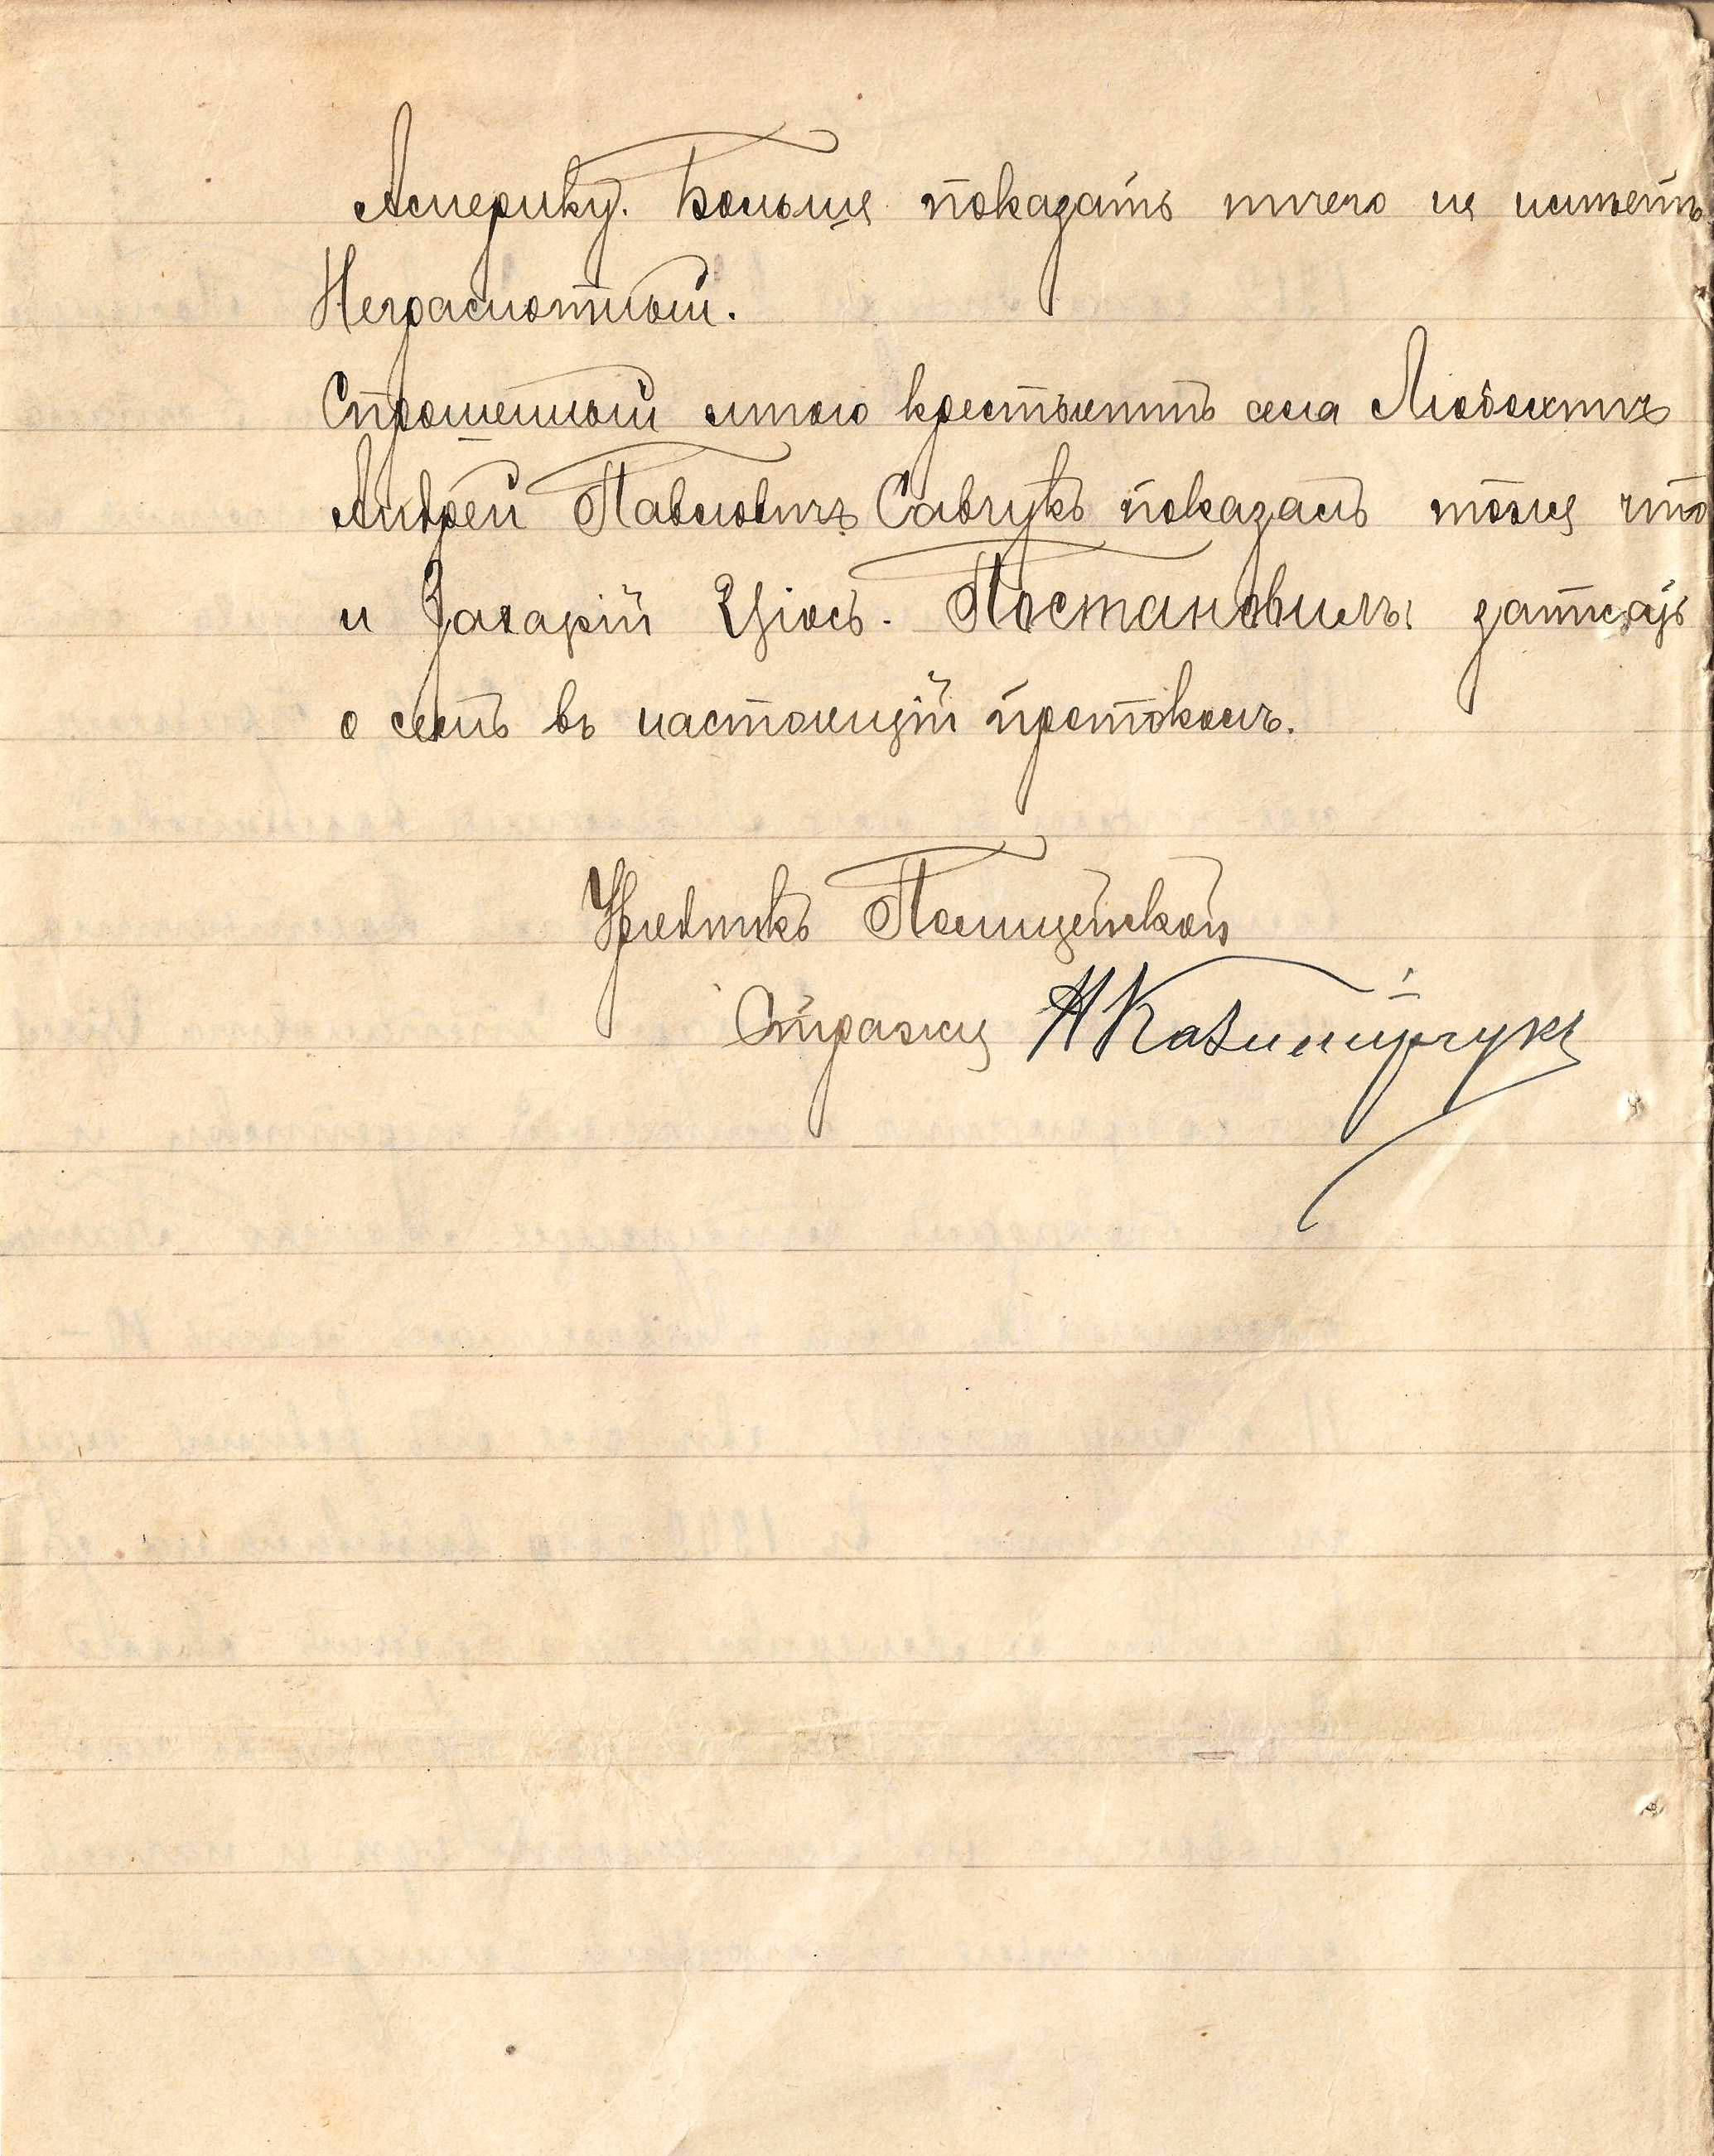 Америку. Больше показать ничего не имѣетъ
Неграмотный.
Спрошенный мною крестьянинъ села Любохинъ
Андрей Павловичъ Савчукъ показалъ тоже что
и Захарій Цюсь. Постановилъ: записать
о семъ въ настоящій протоколъ.
Урядникъ Полицейской
Стражи